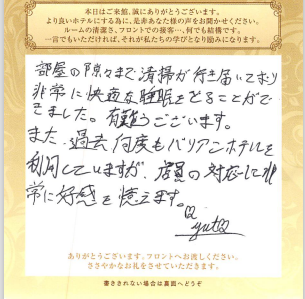 本日はご来館、誠にありがとうございます。
より良いホテルにする為に、是非あなた様の声をお聞かせください。
ルームの清潔さ、フロントでの接客…、何でも結構です。
一言でもいただければ、それが私たちの学びとなり励みになります。
部屋の隙々まで清掃が行き届いており
非常に快適な睡眠をとることがで
きました。有難うございます。
また、過去何度もバリアンホテルを
利用していますが、店員の対応して非
常に好感を憶えます。
ありがとうございます。フロントへお渡しください。
ささやかなお礼をさせていただきます。
書ききれない場合は裏面へどうぞ